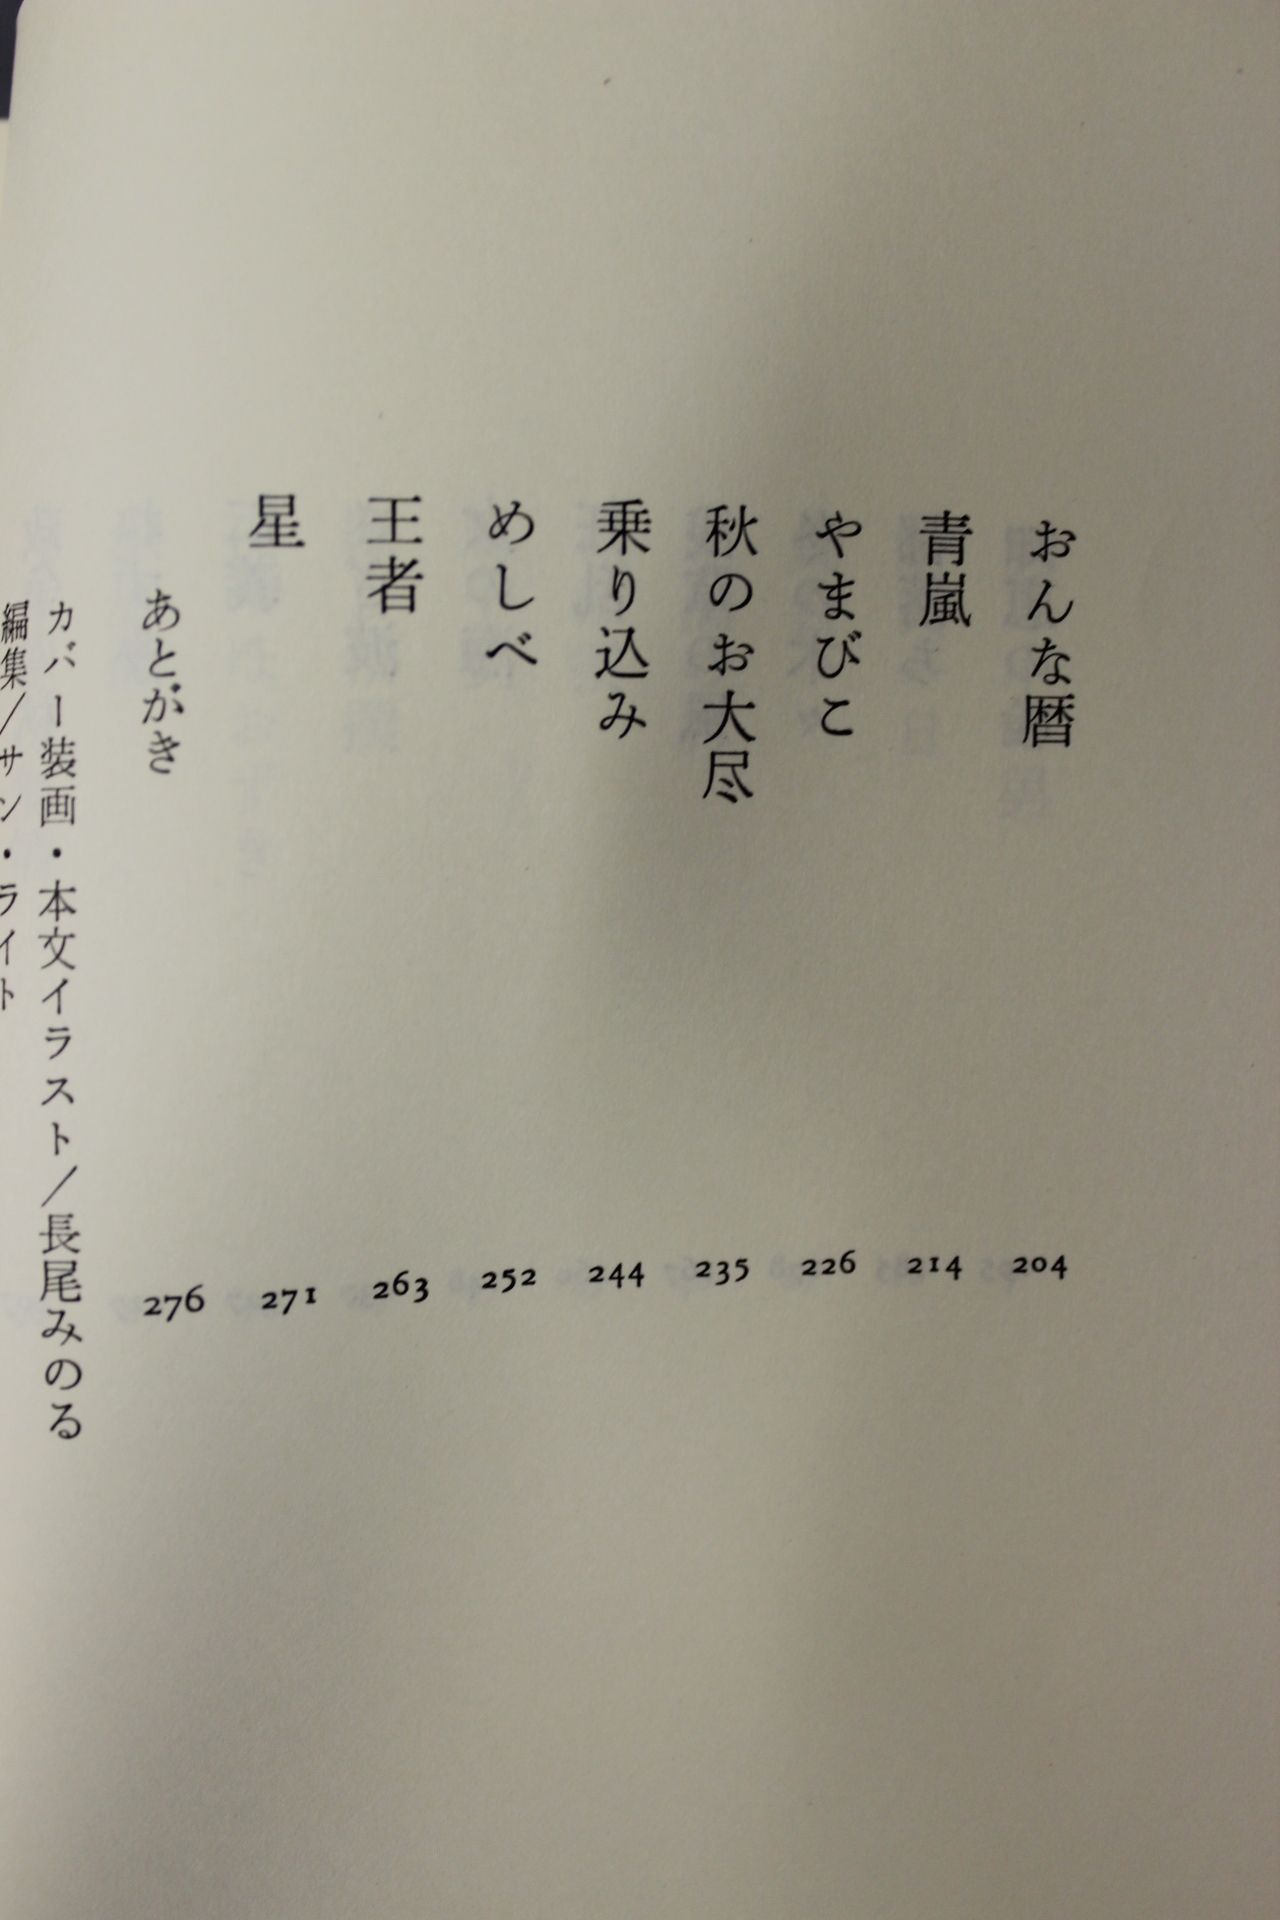 おんな暦 204
青嵐 214
やまびこ 226
秋のお大尽 235
乗り込み 244
めしべ 252
王者 263
星 271
あとがき 276
カバー装画・本文イラスト/長尾みのる
編集/サン・ライト